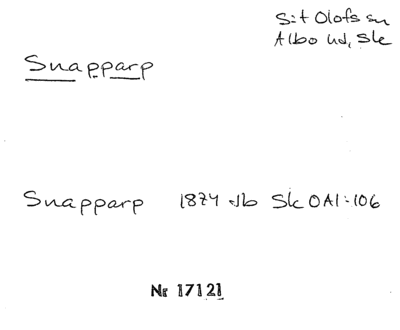 S:t Olofs sn
Albo hd, Sk
Snapparp
Snapparp 1874 Jb Sk OAI:106
Nr 17121